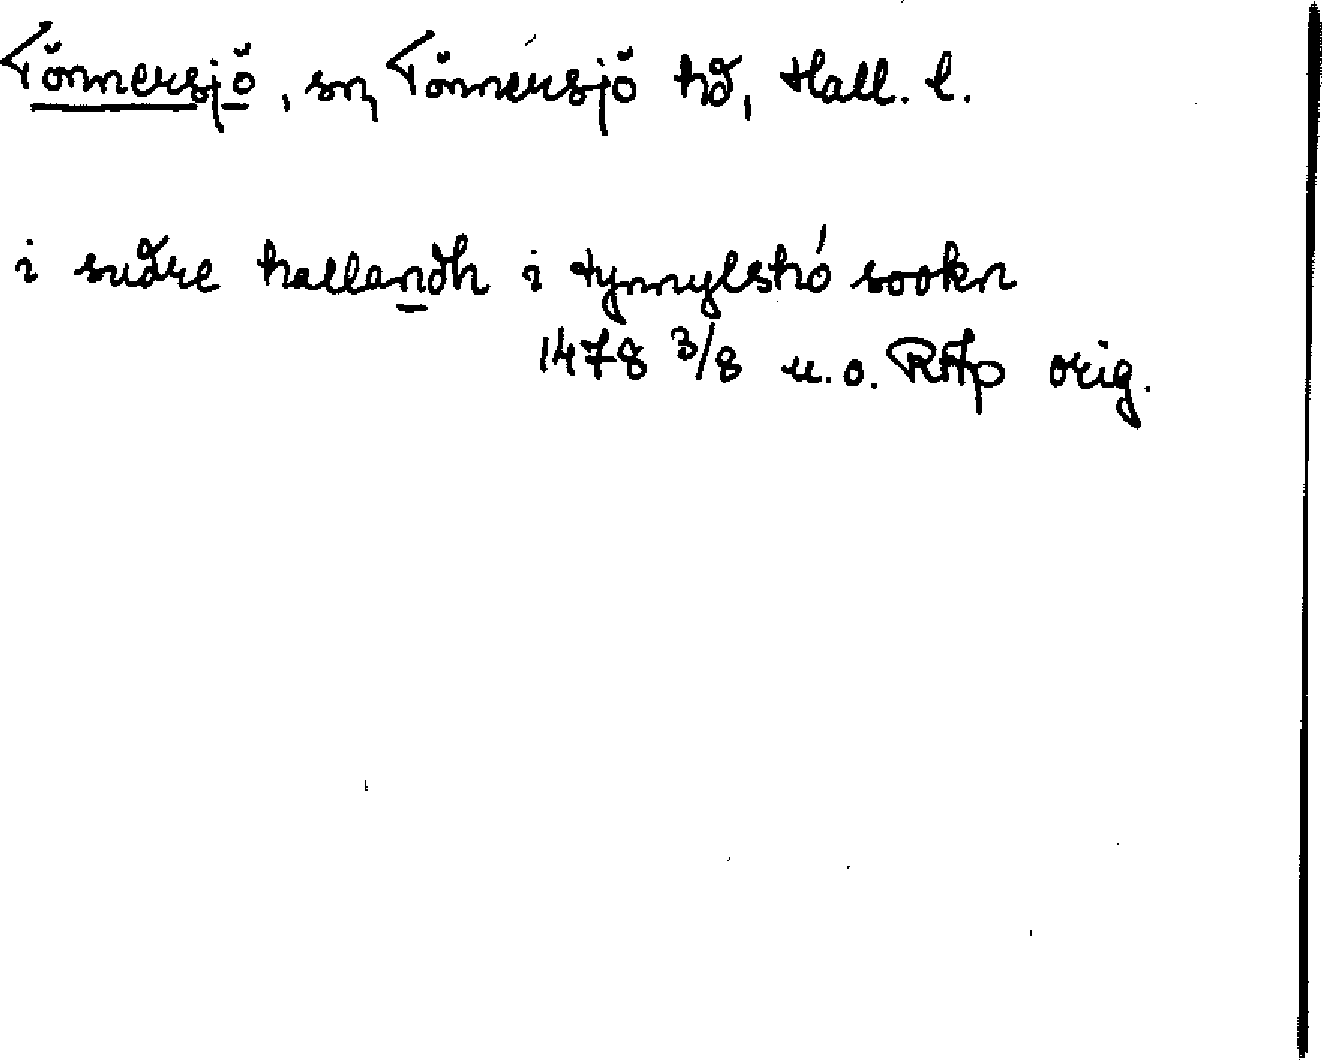 Tönnersjö, sn, Tönnersjö hd, Hall. l.
i sudre hallandh i tynnylshó sookn
1478 3/8 u.o. RAp orig.